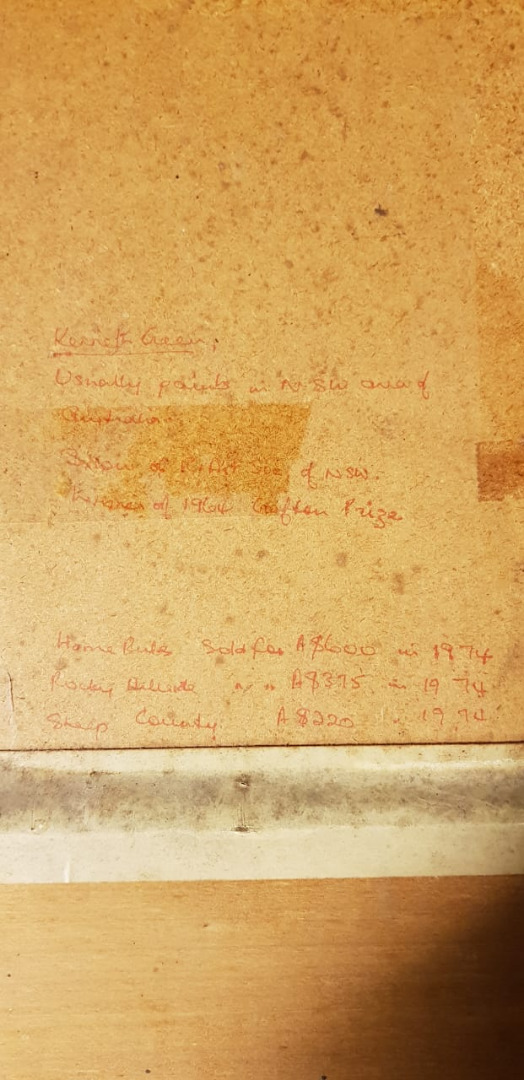 Kenneth Green,
Usually paints in N.S.W area of
Australia
of Art Soc of NSW.
of 1964 Grafton Prize
Home Sold for A$600 in 1974
Rocky " " A$375 in 1974
Sheep Country. A$220 " 1974